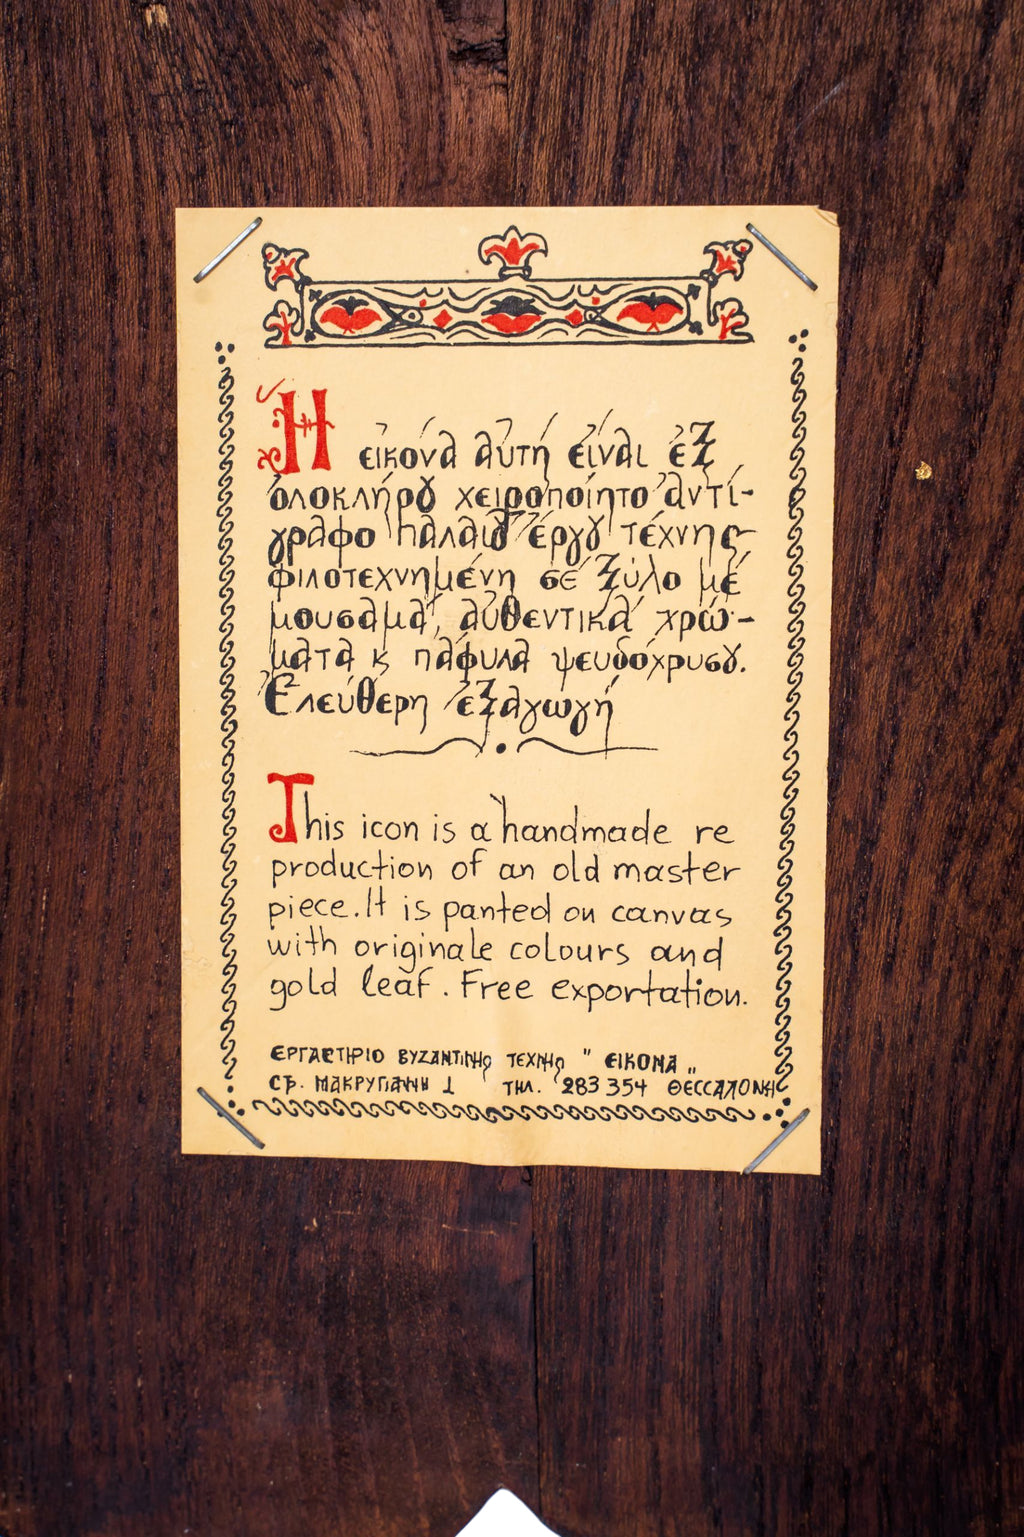 Ἡ εἰκόνα αὐτή εἶναι ἐξ
ὁλοκλήρȣ χειροποίητο ἀντί-
γραφο παλαιȣ ἔργȣ τέχνης
φιλοτεχνημένη σέ ξύλο μέ
μουσαμά, αὐθεντικά χρώ-
ματα κ πάφυλα ψευδοχρυσȣ.
Ἐλεύθερη ἐξαγωγή
This icon is a handmade re
production of an old master
piece. It is panted on canvas
with originale colours and
gold leaf. Free exportation.
ΕΡΓΑΣΤΗΡΙΟ ΒΥΖΑΝΤΙΝΗς ΤΕΧΝΗς " ΕΙΚΟΝΑ „
ΣΤΡ. ΜΑΚΡΥΓΙΑΝΝΗ 1 ΤΗΛ. 283354 ΘΕΣΣΑΛΟΝΙΚΗ